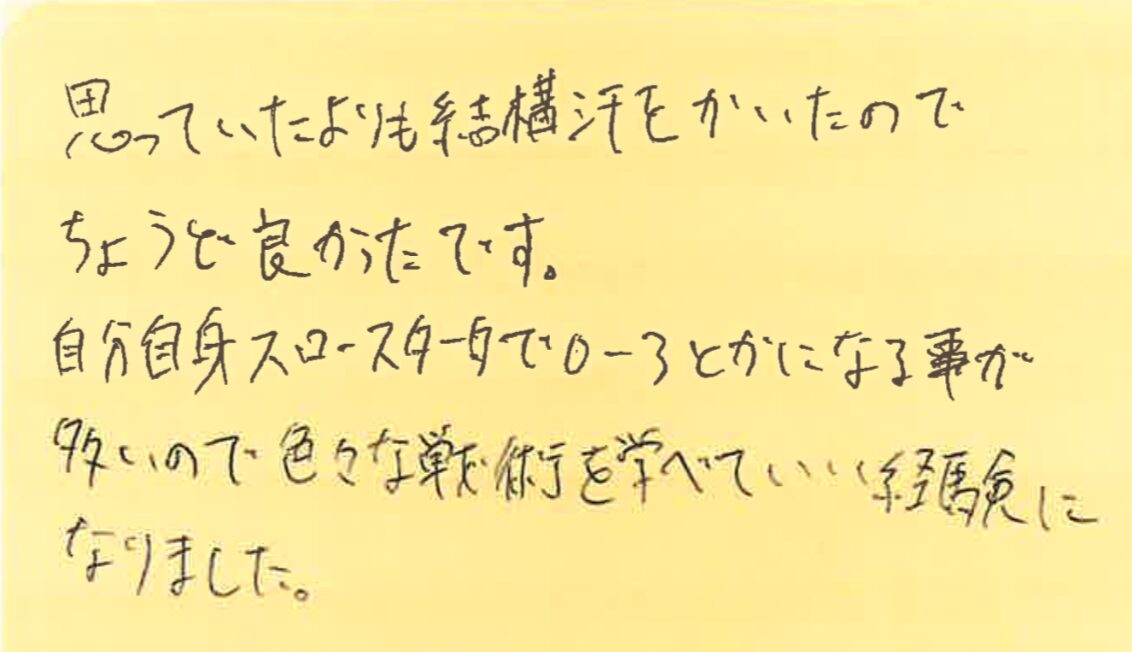 思っていたよりも結構汗をかいたので
ちょうど良かったです。
自分自身スロースタータで0-3とかになる事が
多いので色々な戦術を学べていい経験に
なりました。